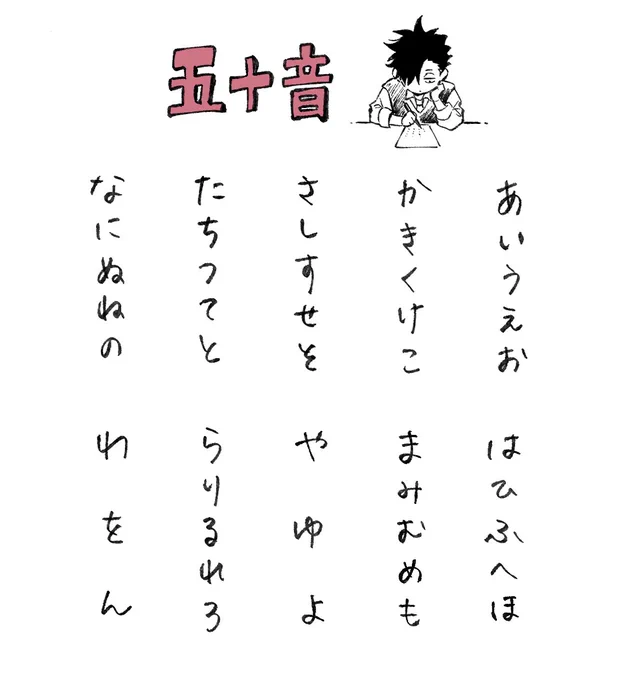 五十音
あいうえお
かきくけこ
さしすせそ
たちつてと
なにぬねの
はひふへほ
まみむめも
やゆよ
らりるれろ
わをん